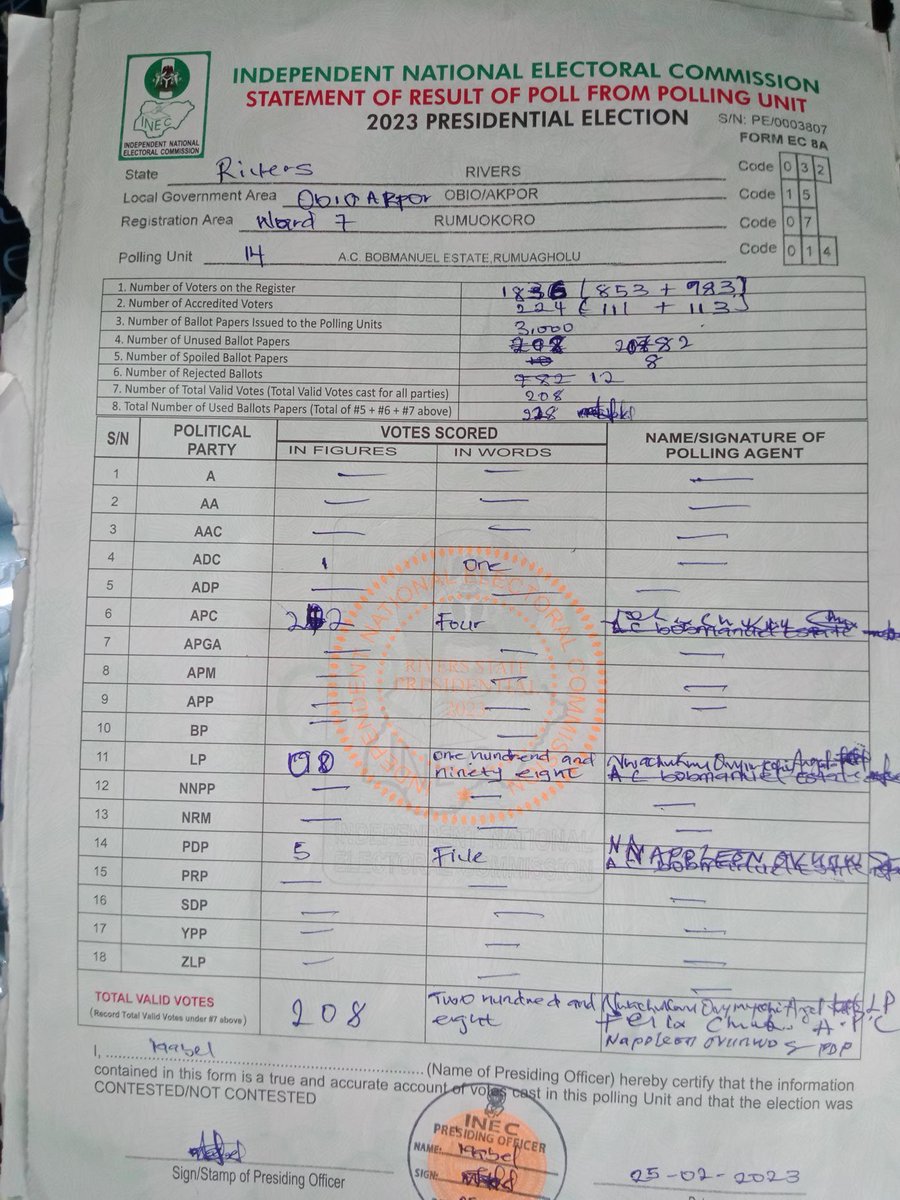 INDEPENDENT NATIONAL ELECTORAL COMMISSION
STATEMENT OF RESULT OF POLL FROM POLLING UNIT
2023 PRESIDENTIAL ELECTION
S/N: PE/0003807
FORM EC 8A
INEC
INDEPENDENT NATIONAL ELECTORAL COMMISSION
State Rivers RIVERS Code 0 3 2
Local Government Area OBIO AKPOR OBIO/AKPOR Code 1 5
Registration Area Ward 7 RUMUOKORO Code 0 7
Polling Unit 14 A.C. BOBMANUEL ESTATE,RUMUAGHOLU Code 0 1 4
1. Number of Voters on the Register 1836 (853 + 983)
2. Number of Accredited Voters 224 (111 + 113)
3. Number of Ballot Papers Issued to the Polling Units 3,000
4. Number of Unused Ballot Papers
5. Number of Spoiled Ballot Papers 8
6. Number of Rejected Ballots 782 12
7. Number of Total Valid Votes (Total Valid Votes cast for all parties) 208
8. Total Number of Used Ballots Papers (Total of #5 + #6 + #7 above) 228
S/N POLITICAL PARTY VOTES SCORED NAME/SIGNATURE OF POLLING AGENT
IN FIGURES IN WORDS
1 A — — —
2 AA — — —
3 AAC — — —
4 ADC 1 one —
5 ADP — — —
6 APC Four A C bobmanuel Estate
7 APGA — — —
8 APM — — —
9 APP — — —
10 BP — —
11 LP one hundred and ninety eight A C bobmanuel Estate
12 NNPP — — —
13 NRM — — —
14 PDP 5 Five NAPOLEEN A C bobmanuel Estate
15 PRP — —
16 SDP — — —
17 YPP — — —
18 ZLP — — —
TOTAL VALID VOTES
(Record Total Valid Votes under #7 above)
208 Two hundred and eight
LP
Felix A.P.C
Napoleon PDP
RIVERS STATE
PRESIDENTIAL
2023
I, ........ (Name of Presiding Officer) hereby certify that the information
contained in this form is a true and accurate account of votes cast in this polling Unit and that the election was
CONTESTED/NOT CONTESTED
INEC
PRESIDING OFFICER
NAME:
SIGN:
Sign/Stamp of Presiding Officer
25-02-2023